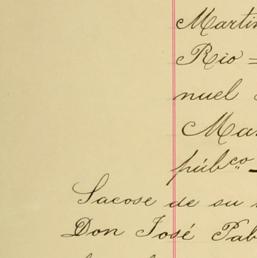 Martin
Rio =
nuel
Ma
púb.co
Sacose de su
Don José Pab